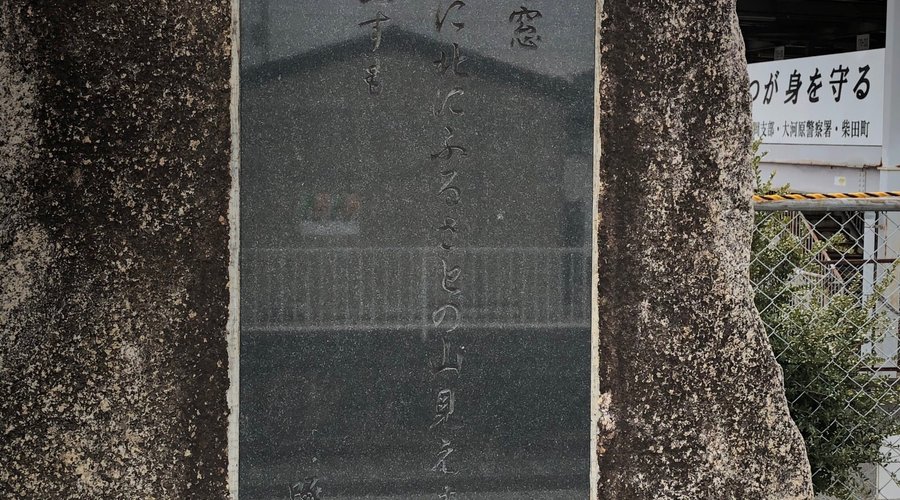 窓
に北にふるさとの山見え
すも
つが身を守る
支部・大河原警察署・柴田町